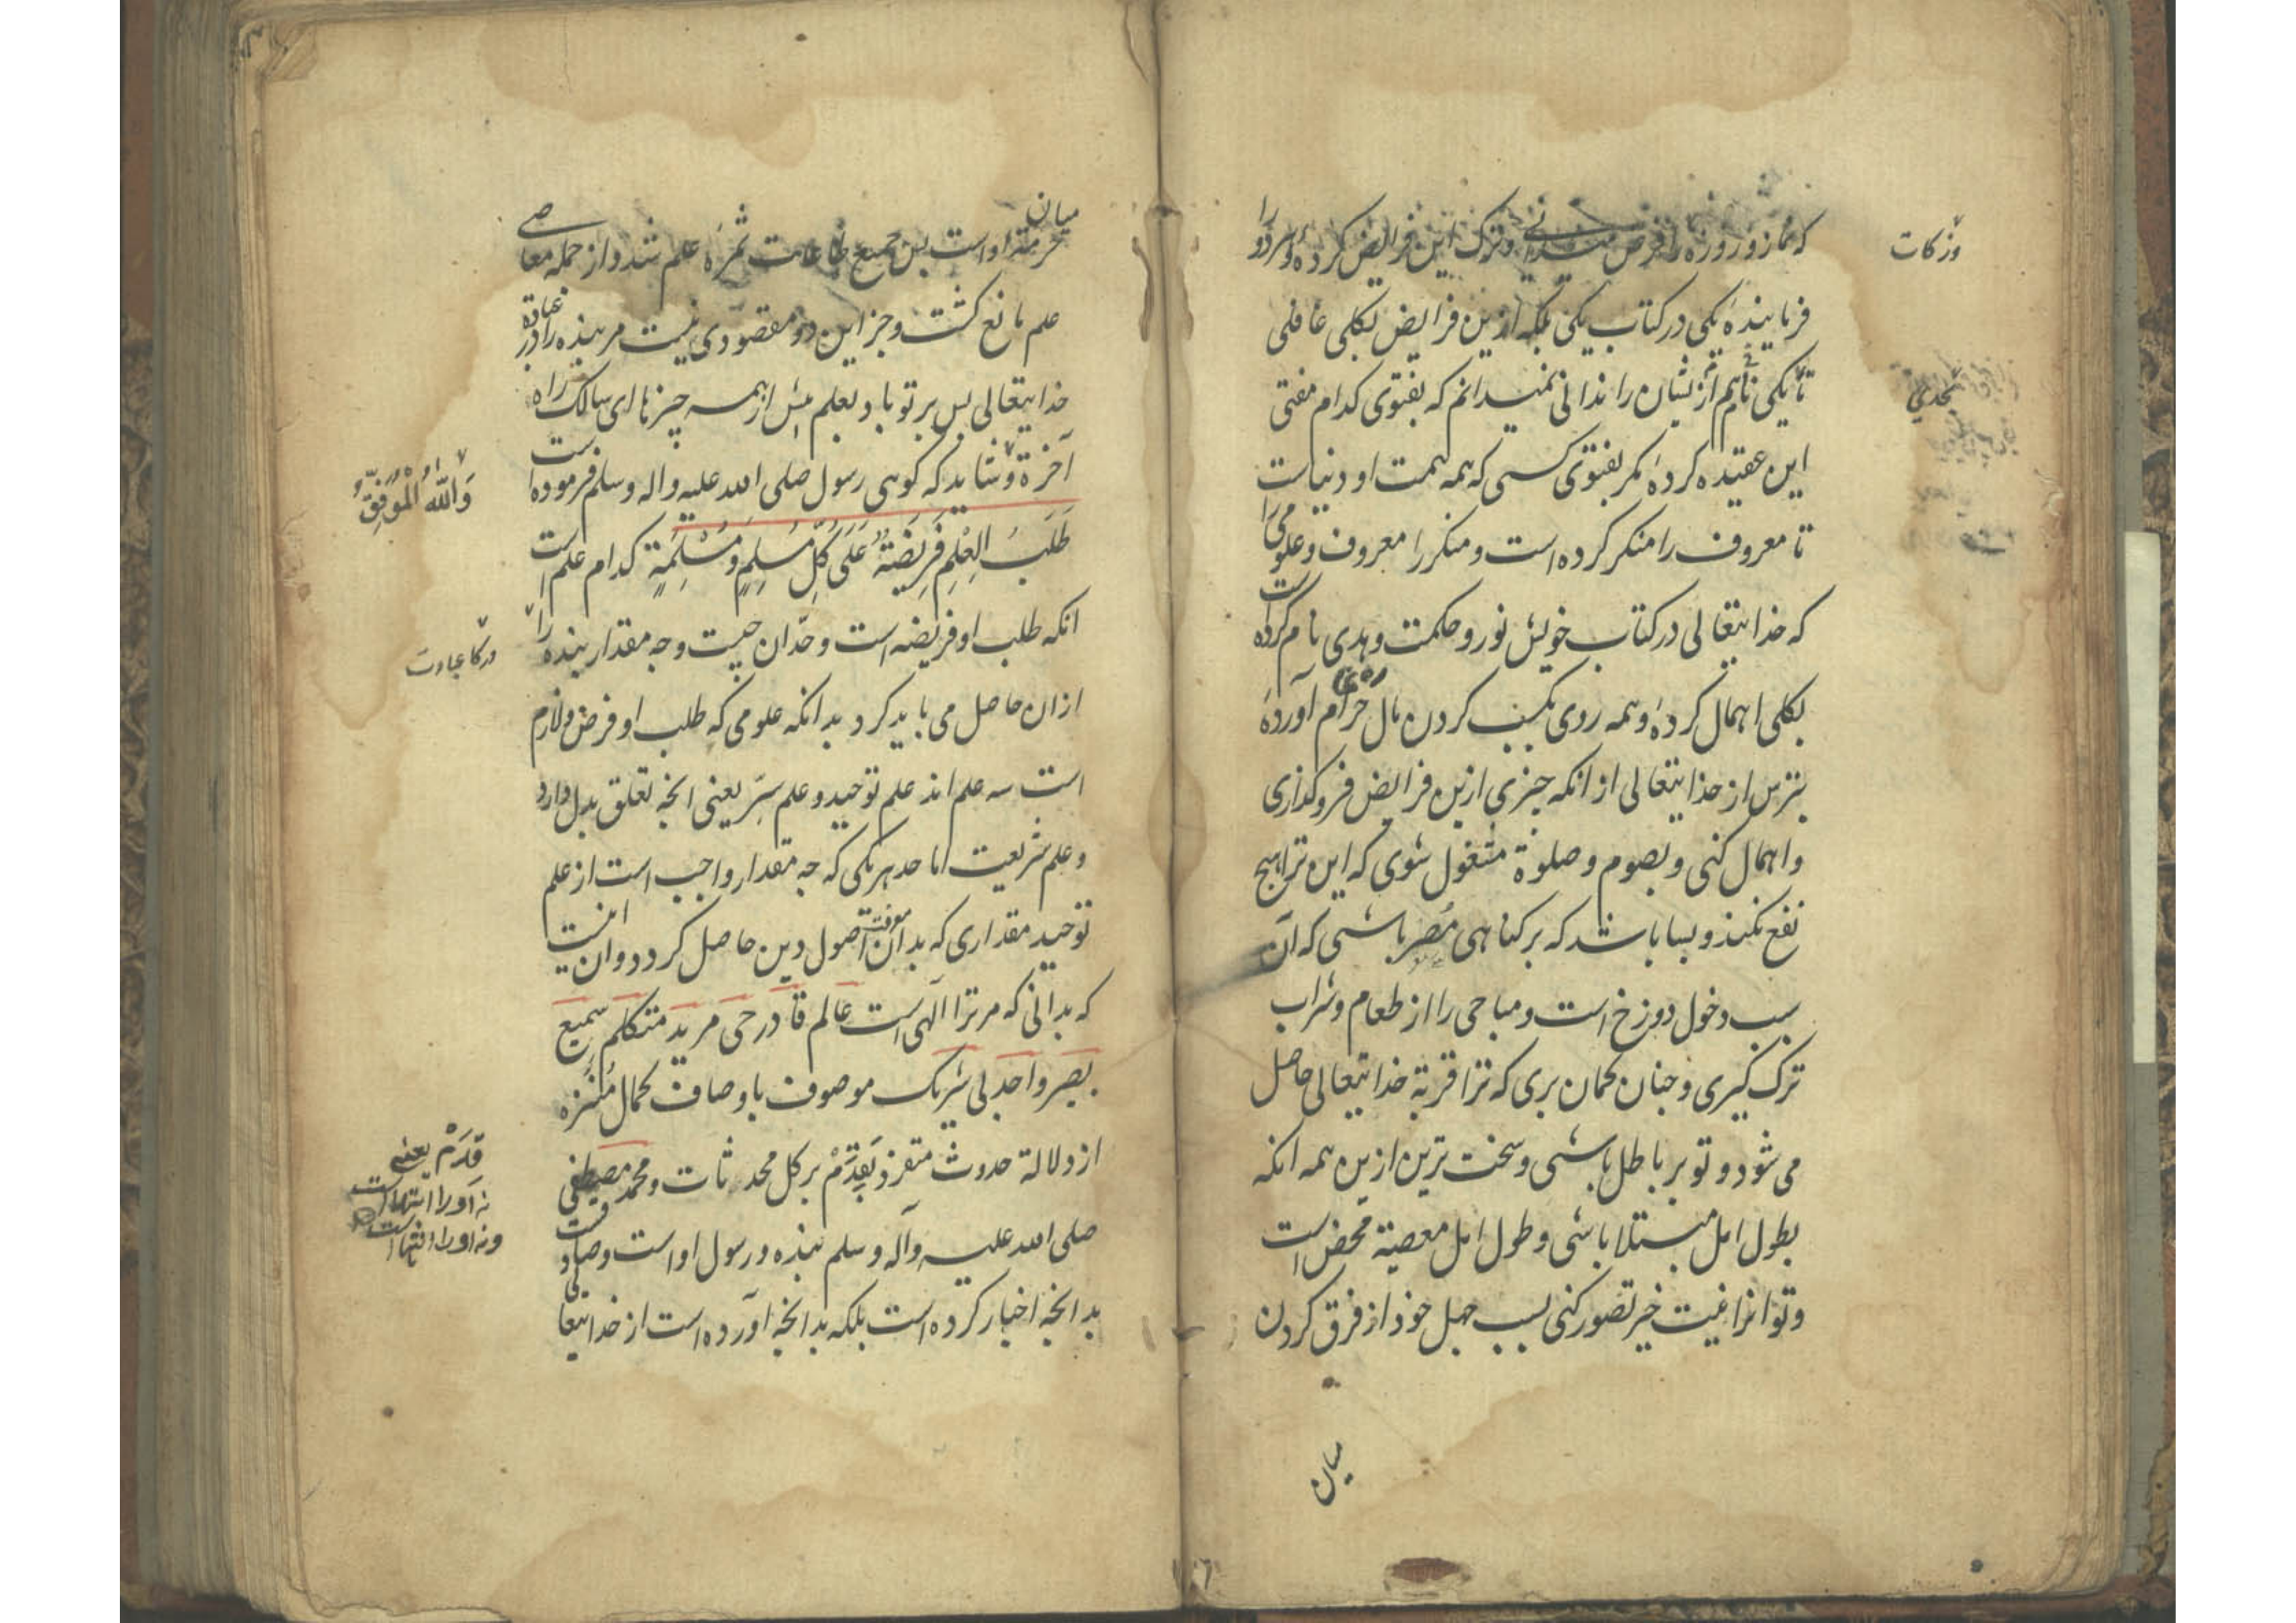 که نماز و روزه را فرض میدانی و ترک این فرایض کرده و هر دو را
وزکات
فرماینده یکی در کتاب یکی بلکه ازین فرایض بکلی غافلی
تا یکی نام از نشان را ندانی نمیدانم که بفتوی کدام مفتی
بحدی
این عقیده کردهٔ مکر بفتوی کسی که همه همت او دنیاست
تا معروف را منکر کرده است و منکر را معروف و علومی را
که خدایتعالی در کتاب خویش نور و حکمت و هدی نام کرده است
بکلی اهمال کردهٔ و همه روی بکسب کردن مال حرام آوردهٔ
بترس از خدایتعالی از انکه چیزی ازین فرایض فروکذاری
و اهمال کنی و بصوم و صلوة مشغول شوی که این ترا هیچ
نفع نکند و بسا باشد که بر کناهی مُصِر باشی که آن
سبب دخول دوزخ است و مباحی را از طعام و شراب
ترک کیری و جنان کمان بری که ترا قربة خدایتعالی حاصل
می شود و تو بر باطل باشی و سخت ترین ازین همه انکه
بطول امل مبتلا باشی و طول امل معصیة محض است
و تو انرا نیت خیر تصور کنی بسبب جهل خود از فرق کردن
میان
میان
حرمتر او است بس جمیع طاعات ثمرهٔ علم شد و از جمله معاصی
علم مانع کشت و جز این دو مقصودی نیست مر بنده را در عبادة
خدایتعالی بس بر تو باد بعلم بیش از همه چیزها ای سالک راه
آخرة و شاید که کوئی رسول صلی الله علیه واله وسلم فرموده است
وَاللهُ الْمُوَفِّقُ
طَلَبُ العِلْمِ فَرِیضَةٌ عَلَی کُلِّ مُسْلِمٍ وَمُسْلِمَةٍ کدام علم است
انکه طلب او فریضه است و حدّ ان چیست و چه مقدار بنده را
در کار عبادت
ازان حاصل می باید کرد بدانکه علومی که طلب او فرض و لازم
است سه علم اند علم توحید و علم سِرّ یعنی انچه تعلق بدل دارد
و علم شریعت اما حد هر یکی که چه مقدار واجب است از علم
توحید مقداری که بدان معرفت اصول دین حاصل کردد و ان انست
که بدانی که مر ترا آلهی است عالم قادر حی مرید متکلم سمیع
بصیر واحد بی شریک موصوف باوصاف کمال مُنَزه
از دلالة حدوث متفرد بقِدَمْ بر کل محدثات و محمد مصطفی
قِدَمْ یعنی
نه او را ابتداست
ونه او را انتهاست
صلی الله علیه وآله وسلم بنده و رسول او است و صادقست
بدانچه اخبار کرده است بلکه بدانچه آورده است از خدایتعالی